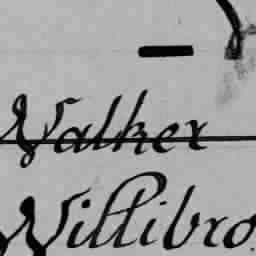 Walker
Willibro